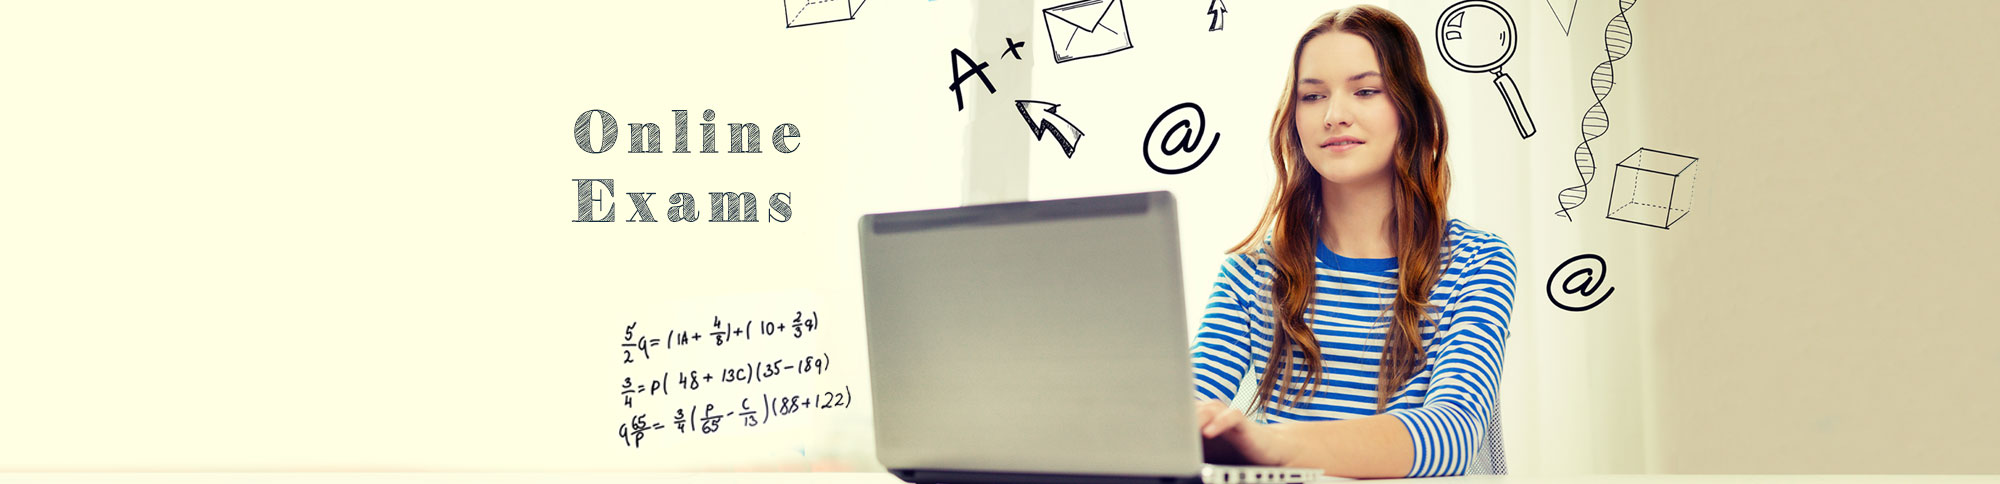 A+
@
Online
Exams
@
5/2 q = (1A + 4/8) + ( 10 + 2/3 q)
3/4 = P( 48 + 13C) (35 - 18q)
q 65/P = 3/4 ( P/65 - C/13 ) (88 + 122)